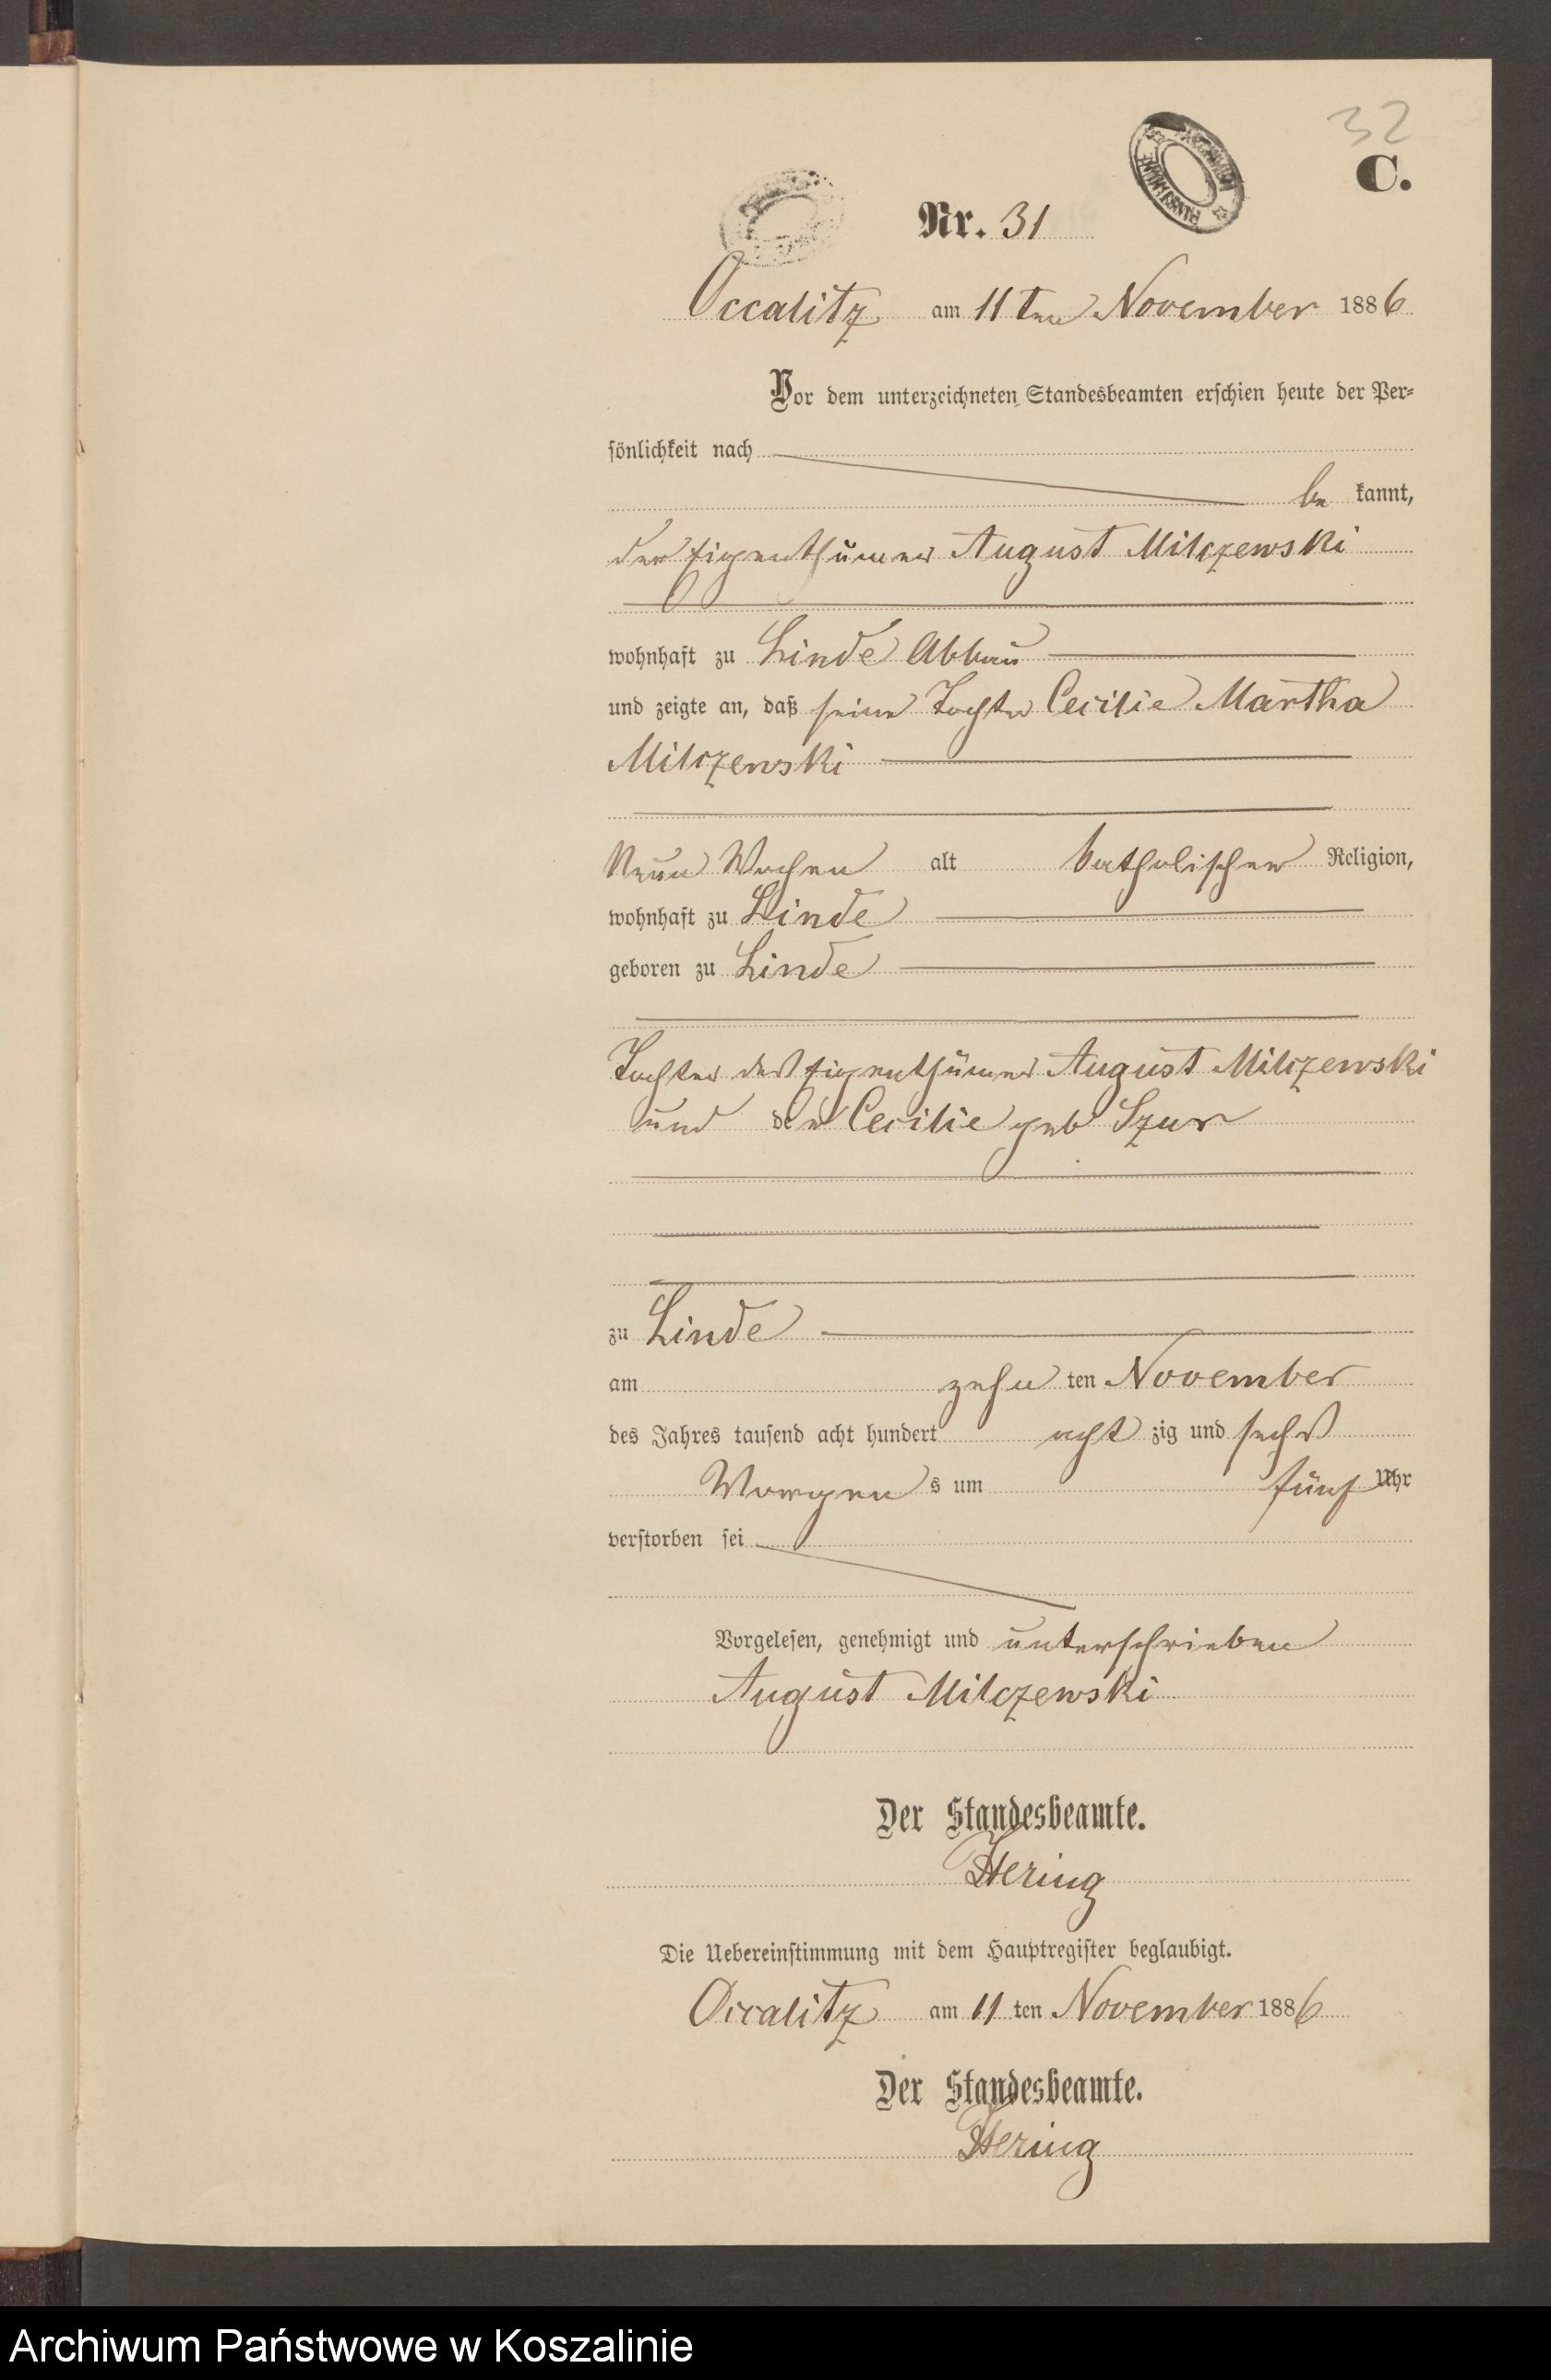 32
C.
Nr. 31
Occalitz am 11ten November 1886
Vor dem unterzeichneten Standesbeamten erschien heute der Per-
sönlichkeit nach
be kannt,
der Eigenthümer August Milczewski
wohnhaft zu Linde Abbau
und zeigte an, daß seine Tochter Cecilie Martha
Milczewski
Neun Wochen alt katholischer Religion,
wohnhaft zu Linde
geboren zu Linde
Tochter des Eigenthümer August Milczewski
und der Cecilie geb Szur
zu Linde
am zehn ten November
des Jahres tausend acht hundert acht zig und sechs
Morgen s um fünf Uhr
verstorben sei
Vorgelesen, genehmigt und unterschrieben
August Milczewski
Der Standesbeamte.
Hering
Die Uebereinstimmung mit dem Hauptregister beglaubigt.
Occalitz am 11 ten November 1886
Der Standesbeamte.
Hering
Archiwum Państwowe w Koszalinie